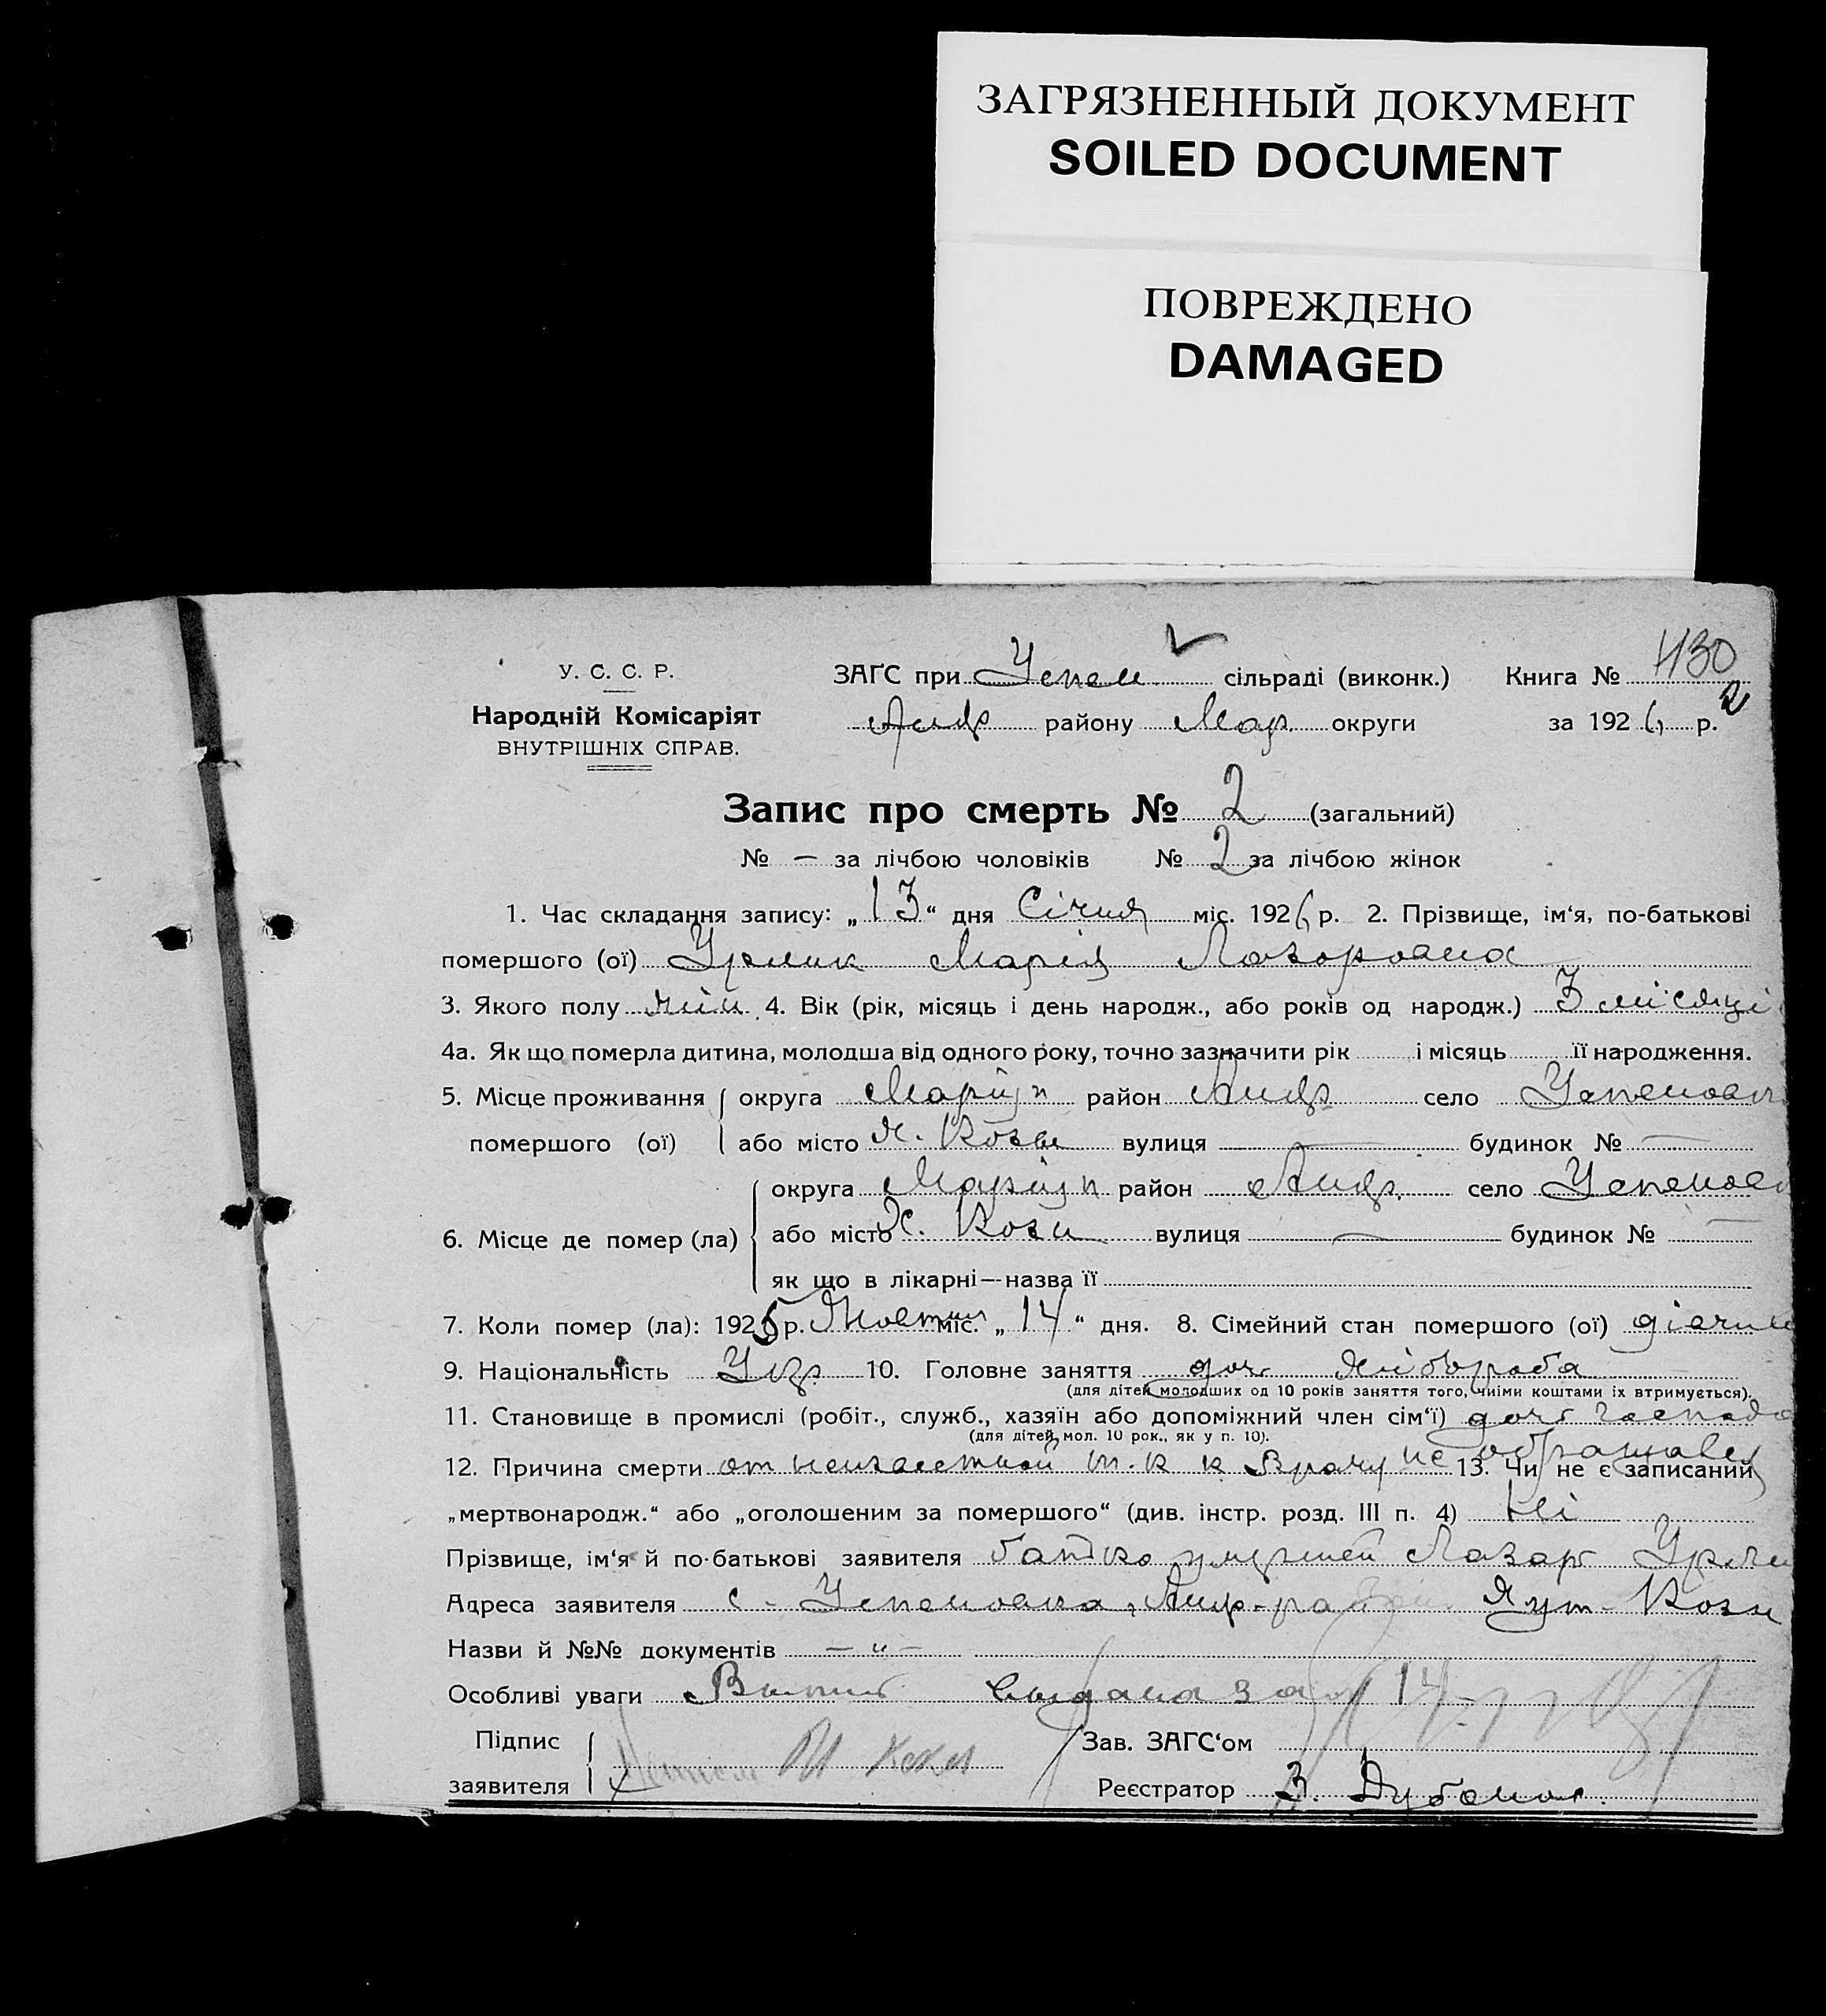 ЗАГРЯЗНЕННЫЙ ДОКУМЕНТ
SOILED DOCUMENT
ПОВРЕЖДЕНО
DAMAGED
У. С. С. Р.
Народній Комісаріят
ВНУТРІШНІХ СПРАВ.
ЗАГС при Успен сільраді (виконк.) Книга № 430
району Мар. округи за 1926 р. 2
Запис про смерть № 2 (загальний)
№ — за лічбою чоловіків № 2 за лічбою жінок
1. Час складання запису: „13“ дня Січня міс. 1926 р. 2. Прізвище, ім‘я, по-батькові
помершого (ої) Марія Лазоровна
3. Якого полу жін 4. Вік (рік, місяць і день народж., або років од народж.) 3 місяці
4а. Як що померла дитина, молодша від одного року, точно зазначити рік і місяць її народження.
5. Місце проживання округа Маріуп район село Успеновк
помершого (ої) або місто х. вулиця — будинок № —
6. Місце де помер (ла) округа Маріуп район село Успеновк
або місто Х. вулиця — будинок № —
як що в лікарні—назва її
7. Коли помер (ла): 1925 р. Жовтня міс. „14“ дня. 8. Сімейний стан помершого (ої)
9. Національність Укр 10. Головне заняття доч хлібороба
(для дітей молодших од 10 років заняття того, чиїми коштами їх втримується).
11. Становище в промислі (робіт., служб., хазяїн або допоміжний член сім‘ї) доч
(для дітей мол. 10 рок., як у п. 10).
12. Причина смерти от неизвестной т. к к врачу не обращався 13. Чи не є записаний
„мертвонародж.“ або „оголошеним за помершого“ (див. інстр. розд. III п. 4) Ні
Прізвище, ім‘я й по-батькові заявителя батько умершей Лазарь
Адреса заявителя с. Успеновка, Хут.
Назви й №№ документів — „ —
Особливі уваги выдана за 14
Підпис
заявителя
Зав. ЗАГС‘ом
Реєстратор З.